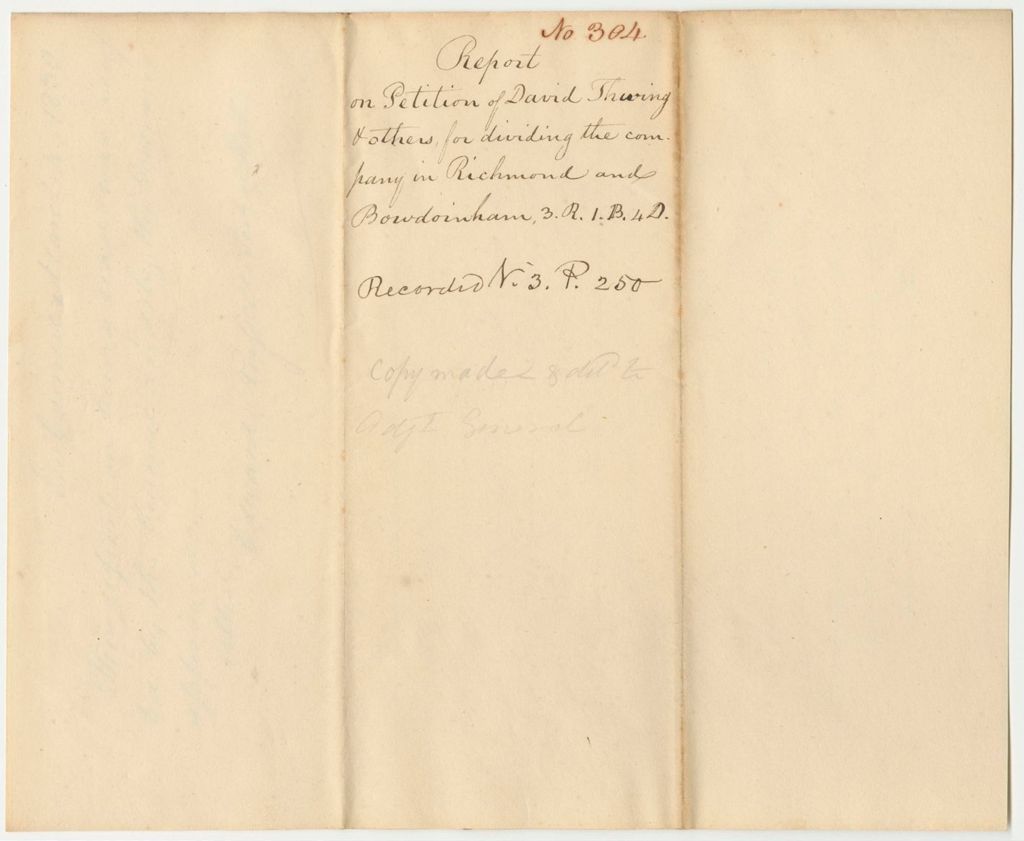 No 304
Report
on Petition of David Thwing
& others, for dividing the com-
pany in Richmond and
Bowdoinham, 3. R. 1. B. 4 D.
Recorded N. 3. P. 250
Copy made & deld to
Adjt General